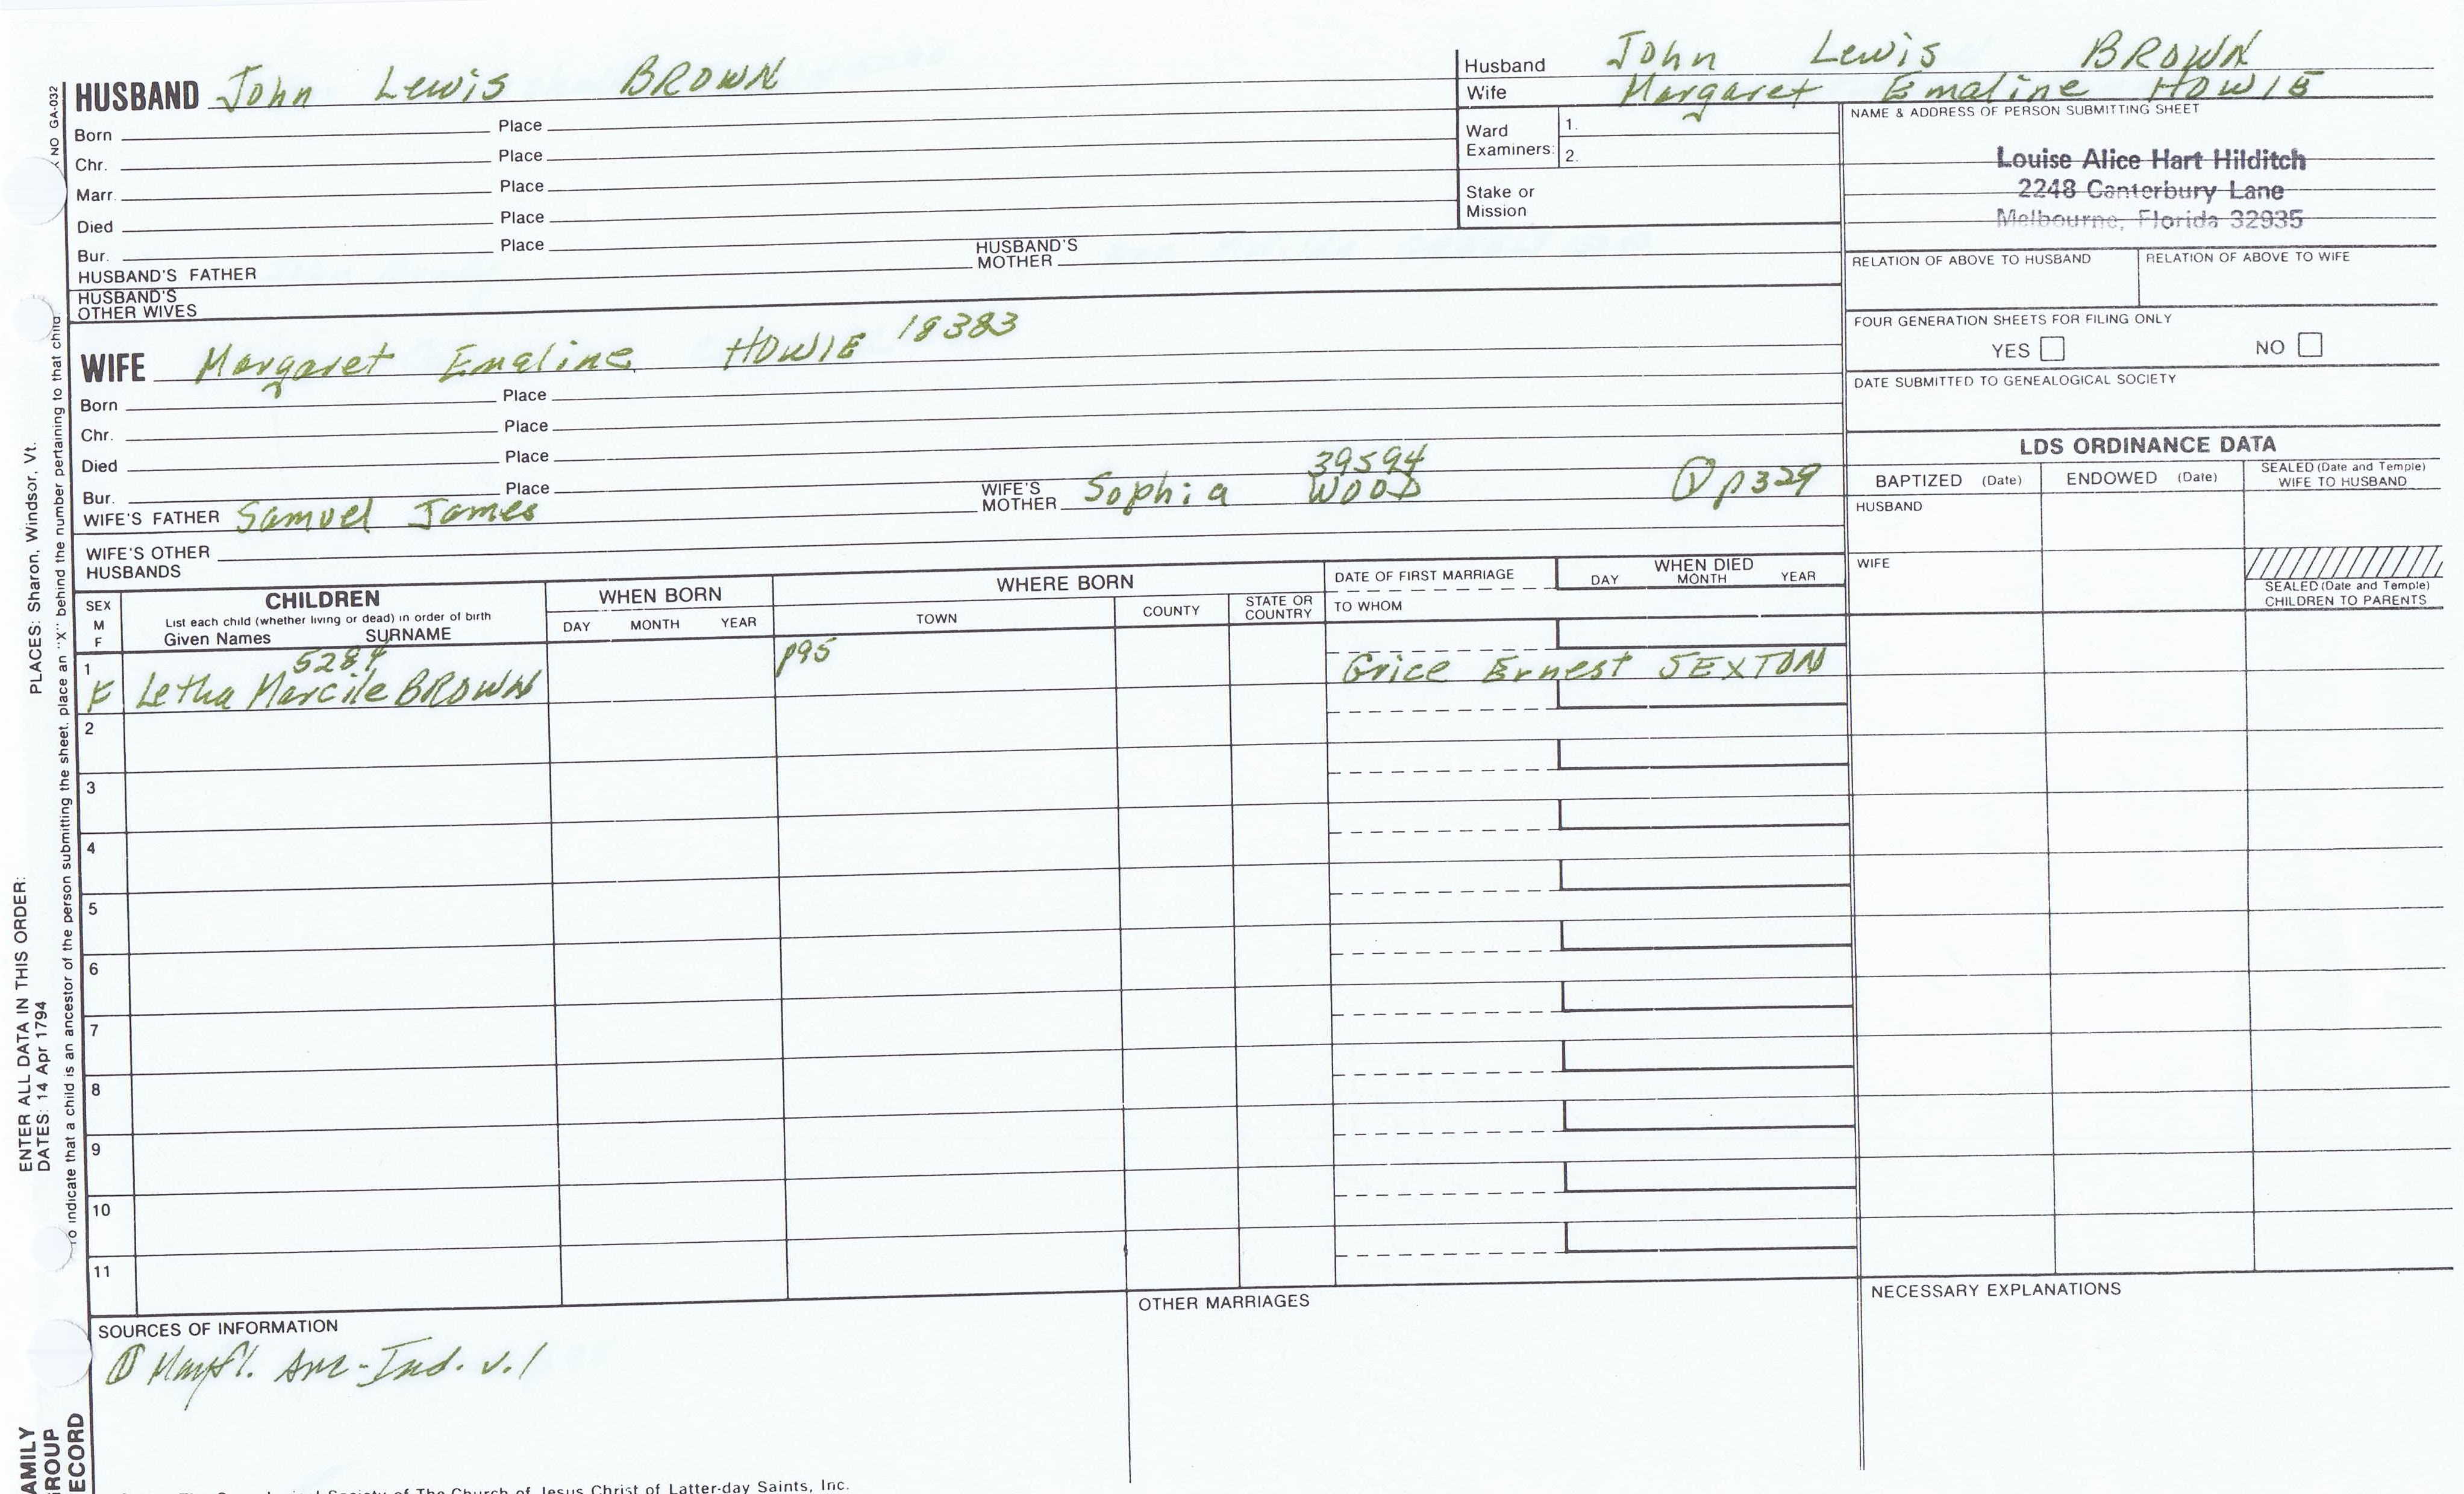 HUSBAND John Lewis BROWN
Born Place
Chr. Place
Marr. Place
Died Place
Bur. Place
HUSBAND'S FATHER HUSBAND'S MOTHER
HUSBAND'S OTHER WIVES
WIFE Margaret Emaline HOWIE 18383
Born Place
Chr. Place
Died Place
Bur. Place
39594
WIFE'S FATHER Samuel James WIFE'S MOTHER Sophia WOOD ① p329
WIFE'S OTHER HUSBANDS
Husband John Lewis BROWN
Wife Margaret Emaline HOWIE
Ward Examiners: 1.
2.
Stake or Mission
NAME & ADDRESS OF PERSON SUBMITTING SHEET
Louise Alice Hart Hilditch
2248 Canterbury Lane
Melbourne, Florida 32935
RELATION OF ABOVE TO HUSBAND RELATION OF ABOVE TO WIFE
FOUR GENERATION SHEETS FOR FILING ONLY
YES NO
DATE SUBMITTED TO GENEALOGICAL SOCIETY
LDS ORDINANCE DATA
BAPTIZED (Date) ENDOWED (Date) SEALED (Date and Temple) WIFE TO HUSBAND
HUSBAND
WIFE
SEALED (Date and Temple) CHILDREN TO PARENTS
SEX M F
CHILDREN
List each child (whether living or dead) in order of birth
Given Names SURNAME
WHEN BORN
DAY MONTH YEAR
WHERE BORN
TOWN COUNTY STATE OR COUNTRY
DATE OF FIRST MARRIAGE
TO WHOM
WHEN DIED
DAY MONTH YEAR
1 5284 p95
F Letha Marcile BROWN Grice Ernest SEXTON
2
3
4
5
6
7
8
9
10
11
SOURCES OF INFORMATION
① Mayfl. Anc-Ind. v.1
OTHER MARRIAGES
NECESSARY EXPLANATIONS
Society of The Church of Jesus Christ of Latter-day Saints, Inc.
NO GA-032
PLACES: Sharon, Windsor, Vt.
ENTER ALL DATA IN THIS ORDER:
DATES: 14 Apr 1794
To indicate that a child is an ancestor of the person submitting the sheet, place an "X" behind the number pertaining to that child
AMILY
ROUP
ECORD